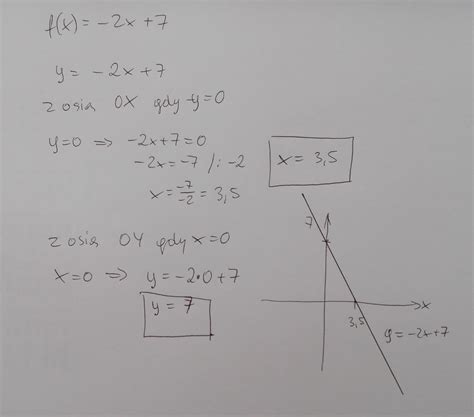 f(x) = -2x+7
y = -2x+7
z osią OX gdy y=0
y=0 ⇒ -2x+7=0
-2x=-7 /: -2
x = -7/-2 = 3,5
x = 3,5
z osią OY gdy x=0
x=0 ⇒ y=-2•0+7
y = 7
7
3,5
x
y=-2x+7